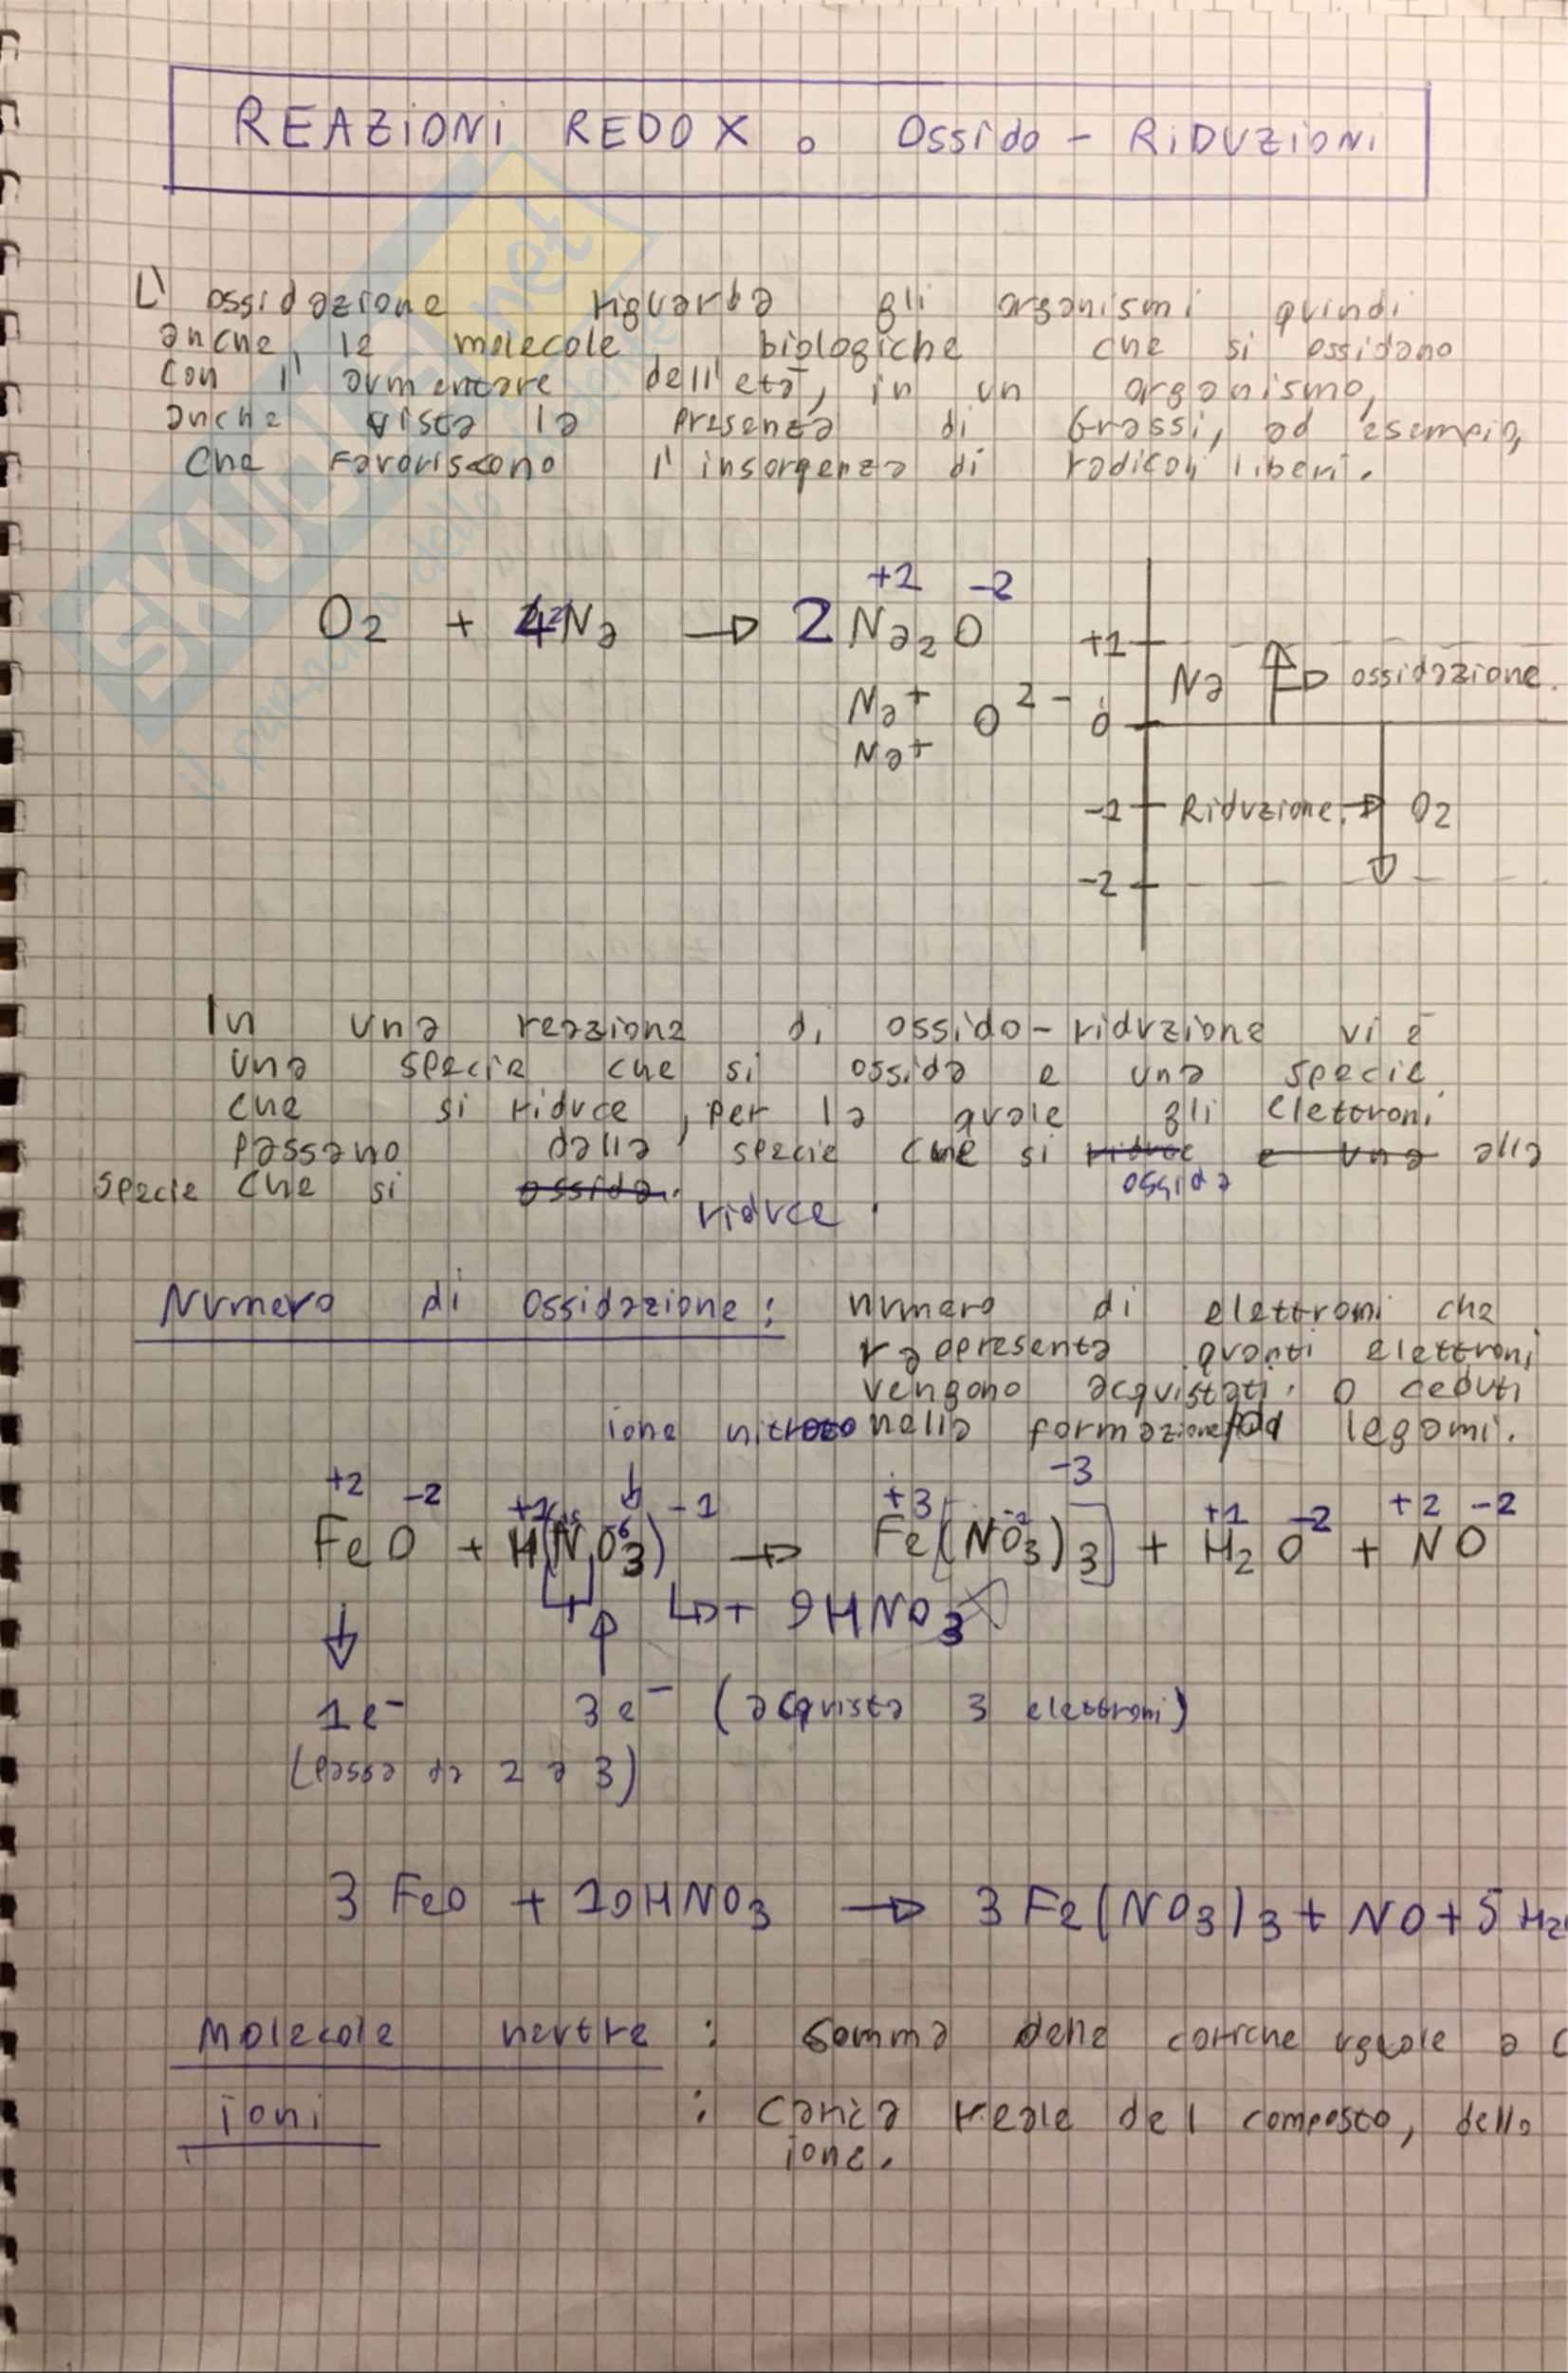 REAZIONI REDOX o Ossido - RIDUZIONI
L' ossidazione riguarda gli organismi quindi
anche, le molecole biologiche che si ossidano
con l' aumentare dell'età, in un organismo,
anche vista la presenza di Grassi, ad esempio,
che favoriscono l'insorgenza di radicali liberi.
+2 -2
O2 + 4Na → 2 Na2O
+1 Na → ossidazione.
Na+ O2- 0
Na+
-1 Riduzione. → O2
-2
In una reazione di ossido-riduzione vi è
una specie che si ossida e una specie
che si riduce, per la quale gli elettroni
passano dalla specie che si riduce e una alla
ossida
specie che si ossida.
riduce.
Numero di ossidazione: numero di elettroni che
rappresenta quanti elettroni
vengono acquistati o ceduti
ione nitrato nella formazione di legami.
-3
+2 -2 -1 +3 +1 -2 +2 -2
FeO + H(NO3) → Fe(NO3)3 + H2O + NO
↳ + 9HNO3
1e- 3e- (acquista 3 elettroni)
(passa da 2 a 3)
3 FeO + 10HNO3 → 3 Fe(NO3)3 + NO + 5 H2
Molecole neutre : somma delle cariche uguale a
ioni : carica reale del composto, dello
ione.
SKUOLA.net
il paradiso dello studente